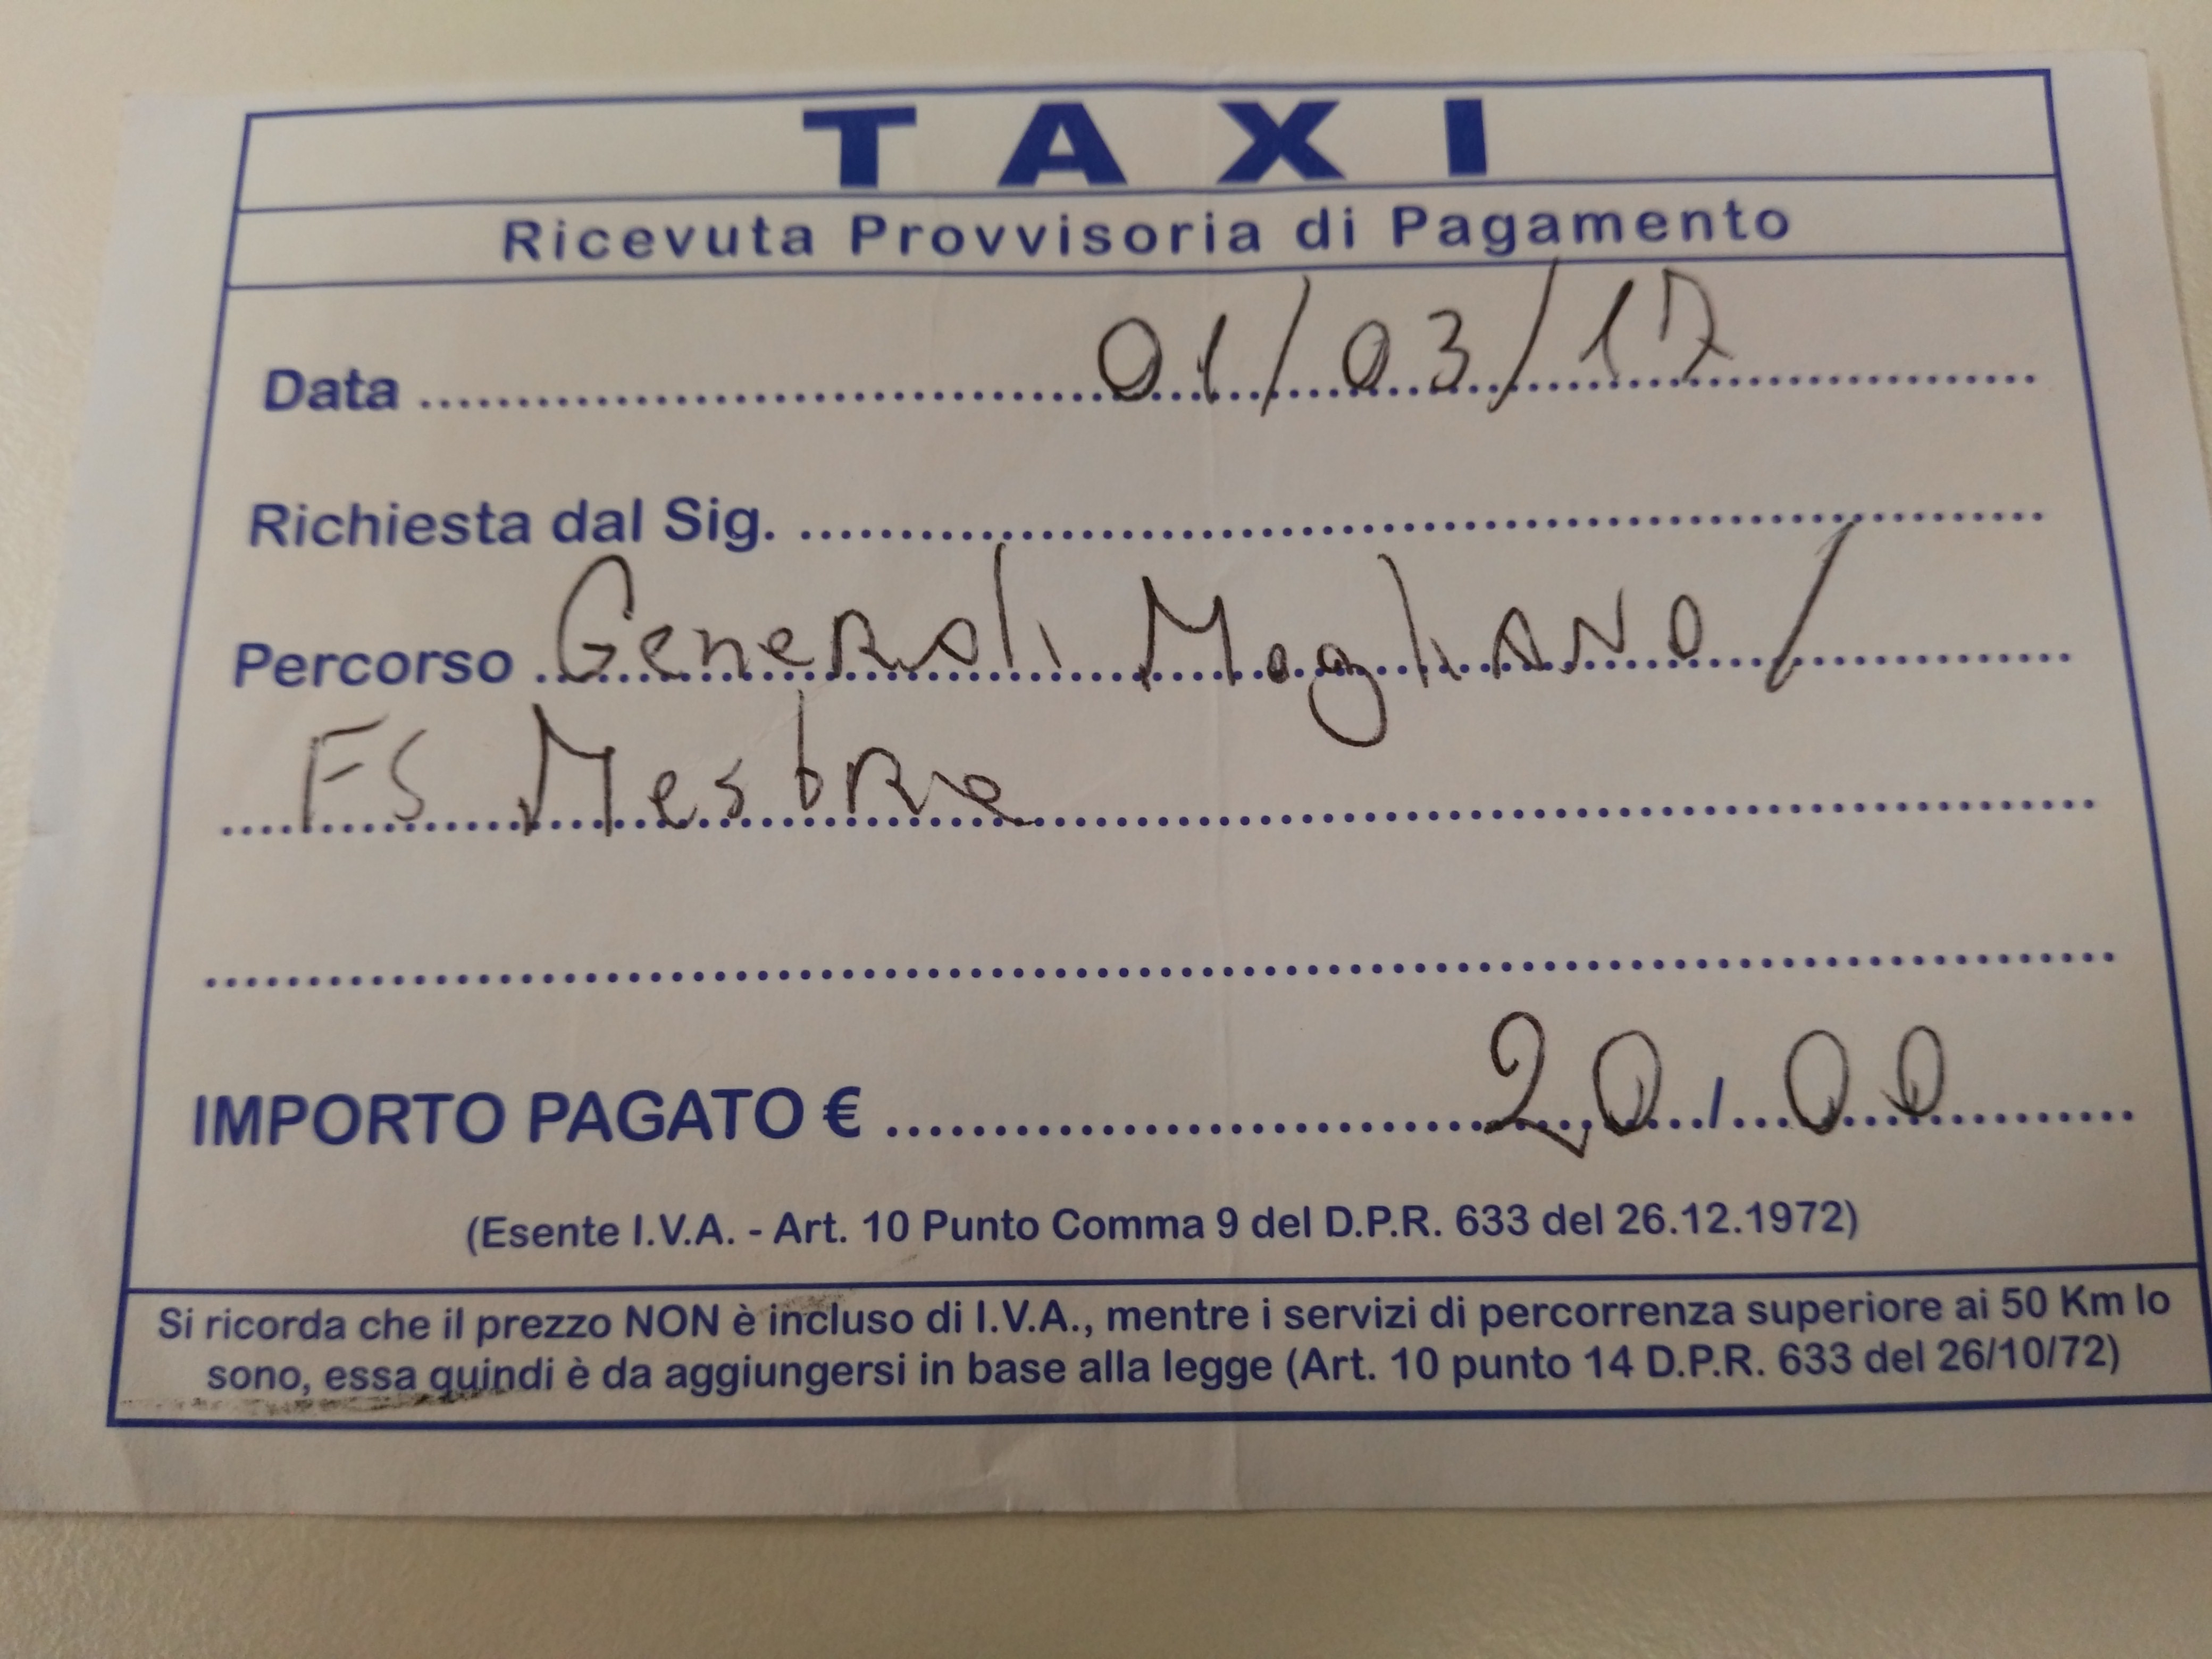 TAXI
Ricevuta Provvisoria di Pagamento
Data ........ 01/03/17 ........
Richiesta dal Sig. ........
Percorso Generali Mogliano /
FS Mestre
IMPORTO PAGATO € ........ 20,00 ........
(Esente I.V.A. - Art. 10 Punto Comma 9 del D.P.R. 633 del 26.12.1972)
Si ricorda che il prezzo NON è incluso di I.V.A., mentre i servizi di percorrenza superiore ai 50 Km lo
sono, essa quindi è da aggiungersi in base alla legge (Art. 10 punto 14 D.P.R. 633 del 26/10/72)